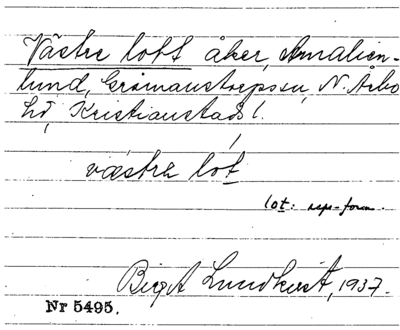 Västre lott åker, Amalien-
lund, Grönaustorpssu, N. Åsbo
hd, Kristianstads l.
västrə lo̲t̲
lot:
Birgit Lundkvist, 1937.
Nr 5495.